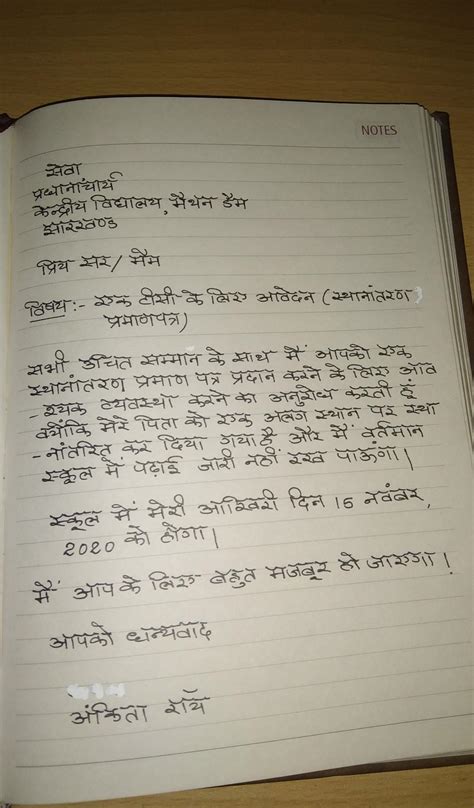 NOTES
सेवा
प्रधानाचार्य
केन्द्रीय विद्यालय, मैथन डैम
झारखण्ड
प्रिय सर/मैम
विषय:- एक टीसी के लिए आवेदन (स्थानांतरण
प्रमाणपत्र)
सभी उचित सम्मान के साथ मैं आपको एक
स्थानांतरण प्रमाण पत्र प्रदान करने के लिए आव
-श्यक व्यवस्था करने का अनुरोध करती हूं
क्योंकि मेरे पिता को एक अलग स्थान पर स्था
-नांतरित कर दिया गया है और मैं वर्तमान
स्कूल में पढ़ाई जारी नहीं रख पाऊंगा।
स्कूल में मेरी आखिरी दिन 15 नवंबर,
2020 को होगा।
मैं आप के लिए बहुत मजबूर हो जाएगा!
आपको धन्यवाद
अंकिता रॉय